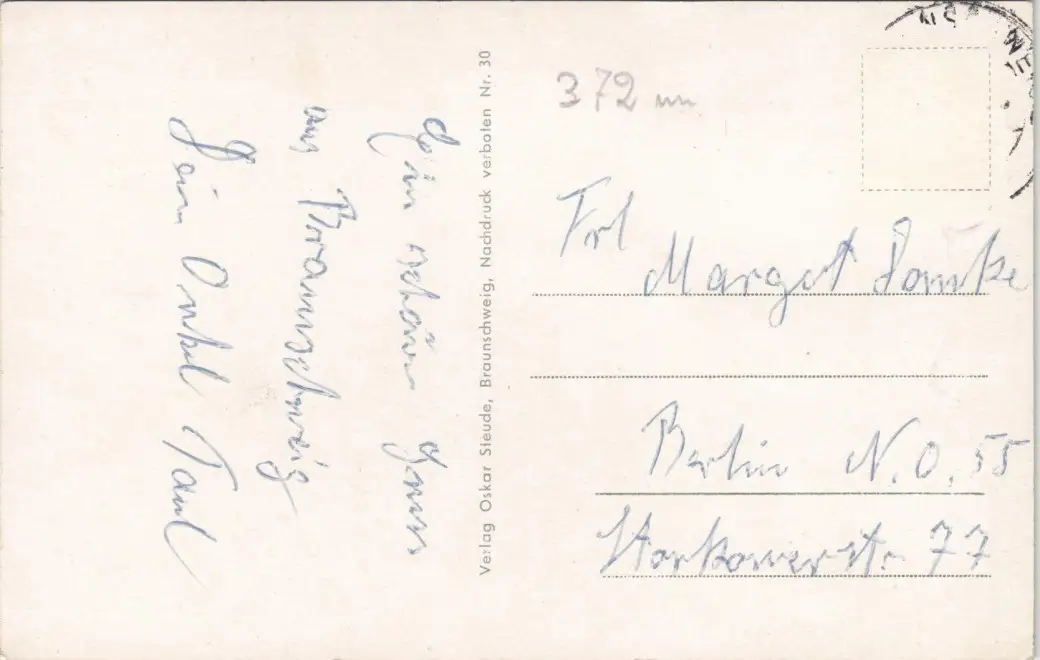 Ein schöner Gruss
aus Braunschweig
Dein Onkel Paul
Verlag Oskar Sleude, Braunschweig, Nachdruck verboten Nr. 30
372
Frl
Margot
Berlin N.O. 55
Storkowerstr. 77